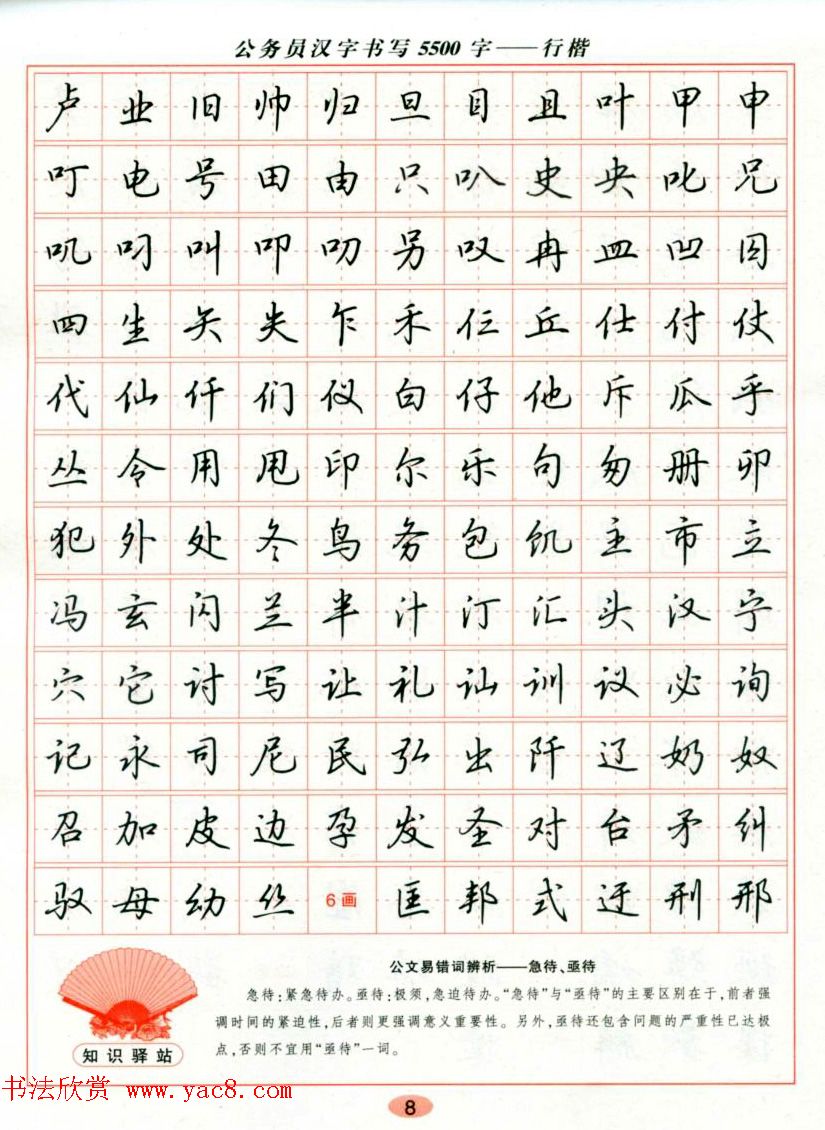 公务员汉字书写5500字——行楷
卢业旧帅归旦目且叶甲申
叮电号田由只叭史央叱兄
叽叼叫叩叨另叹冉皿凹囚
四生矢失乍禾仨丘仕付仗
代仙仟们仪白仔他斥瓜乎
丛令用甩印尔乐句匆册卯
犯外处冬鸟务包饥主市立
冯玄闪兰半汁汀汇头汉宁
穴它讨写让礼讪训议必询
记永司尼民弘出阡辽奶奴
召加皮边孕发圣对台矛纠
驭母幼丝6画匡邦式迂刑邢
公文易错词辨析——急待、亟待
急待:紧急待办。亟待:极须,急迫待办。“急待”与“亟待”的主要区别在于,前者强
调时间的紧迫性,后者则更强调意义重要性。另外,亟待还包含问题的严重性已达极
点,否则不宜用“亟待”一词。
知识驿站
书法欣赏 www.yac8.com
8